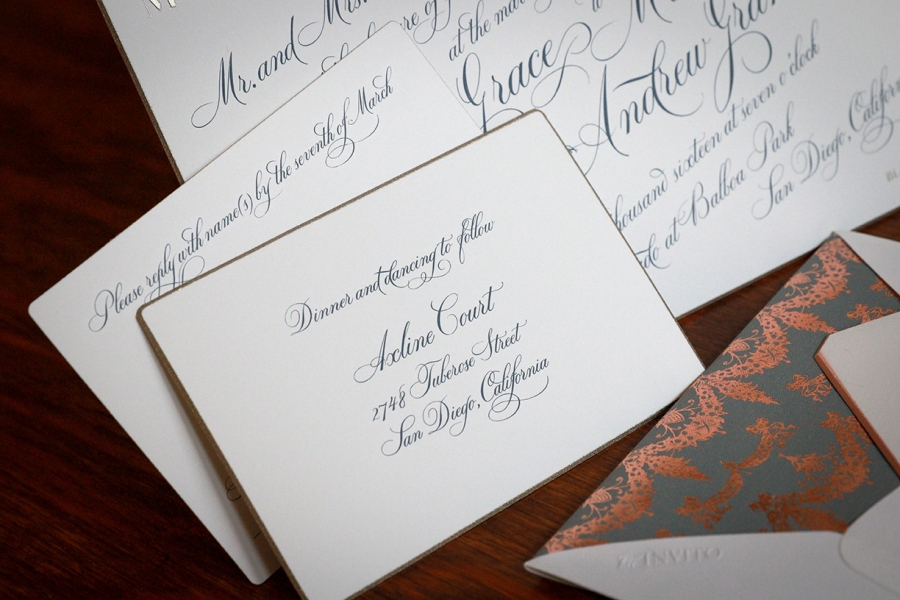 Mr. and Mrs.
at the mar
Grace
Andrew Gran
thousand sixteen at seven o'clock
at Balboa Park
San Diego, Californ
Please reply with name(s) by the seventh of March
Dinner and dancing to follow
Axline Court
2748 Tuberose Street
San Diego, California
INVITO